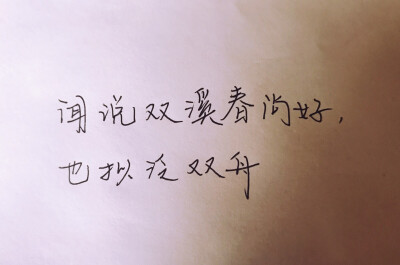 闻说双溪春尚好,
也拟泛双舟